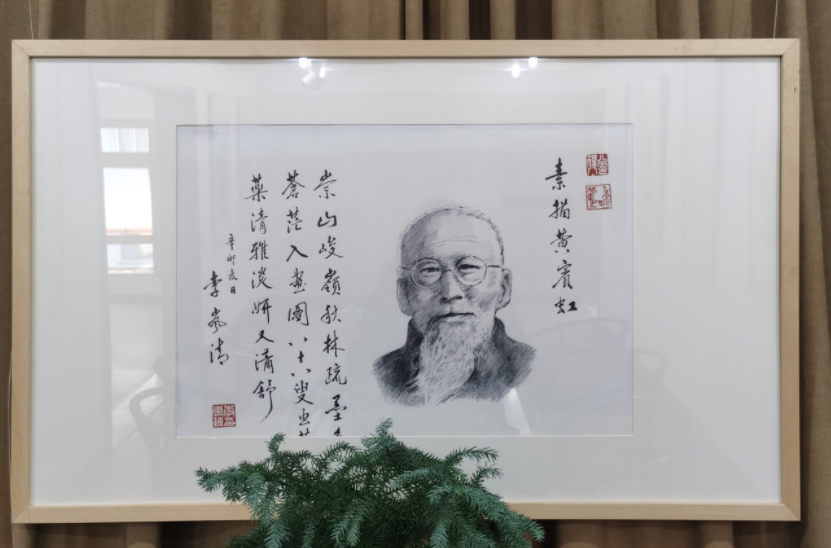 素描黄賓虹
崇山峻嶺秋林疏墨
蒼茫入畫圖八十八叟畫
藥清雅淡妍又瀟舒
辛卯夏日
李岚清